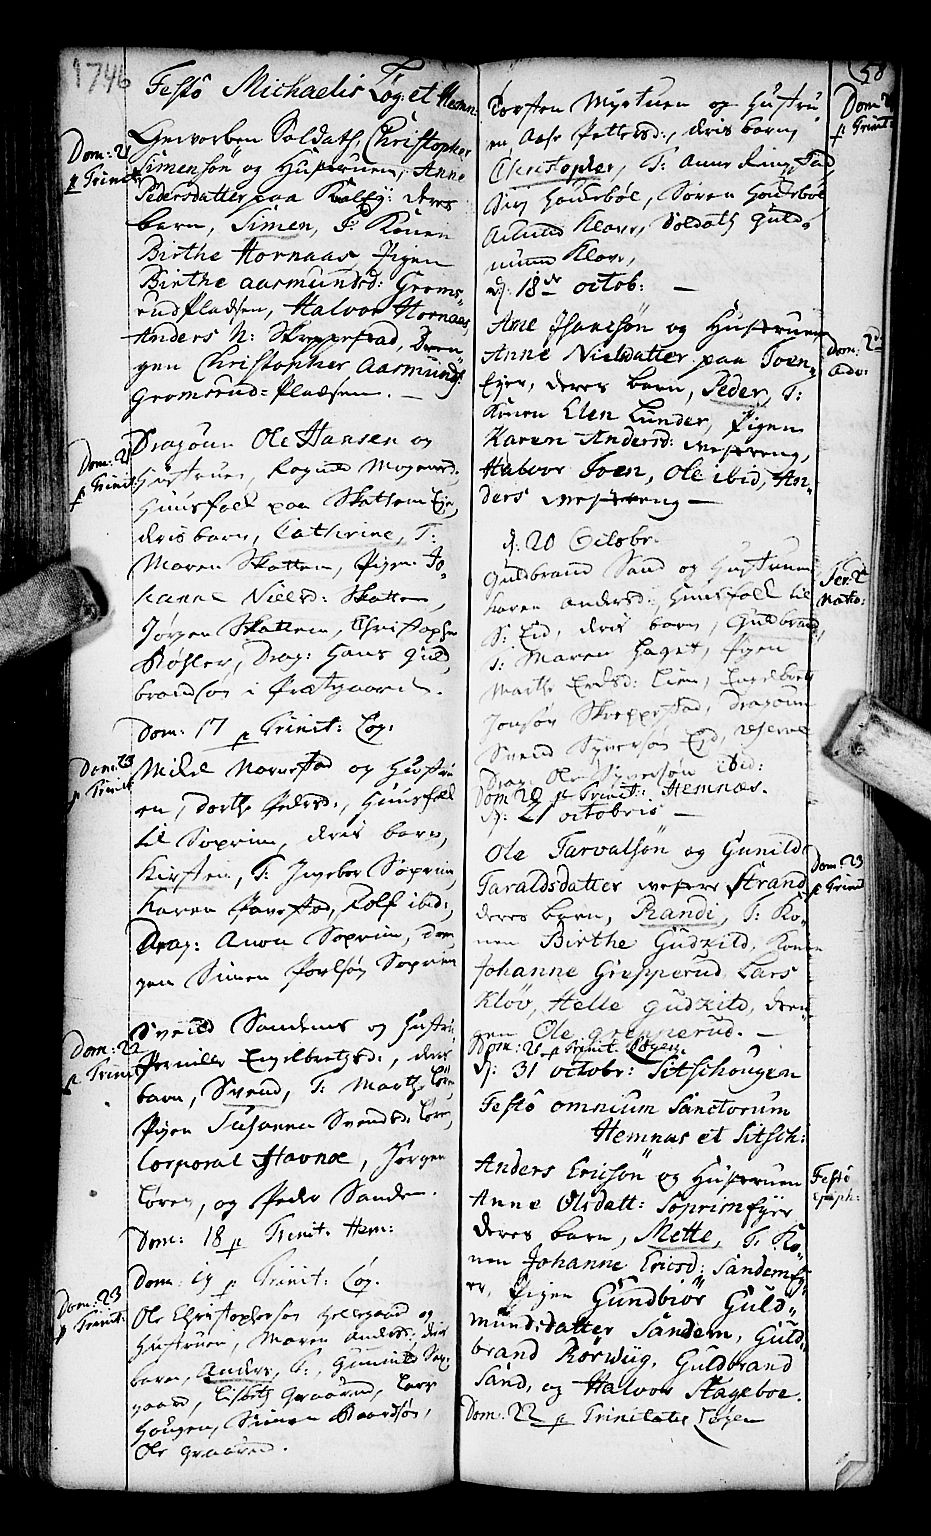 1746
Festo Michaelis Løg: et Hemn:
Dom: 21
p Trinit:
Gevorben Soldath, Christopher
Simensøn og Hustruen, Anne
Pedersdatter paa deres
barn, Simen, T: Konen
Birthe Hornaas Pigen
Birthe Aasmundsd: Groms„
rudpladsen, Halvor Hornaas,
Anders N: Skreppestad, Dren„
gen Christopher Aasmunds:
Gromsrud=Pladsen. —
Dom: 21
p Trinit:
Dragoun Ole Hansen og
Hustruen, Mogensd:
Huusfolk paa Skattem Eje,
deris barn, Cathrine, T:
Maren Skattem, Pigen Jo„
hanne Nielsd: Skattem,
Jørgen Skattem, Christopher
Køhler, Drag: Hans Guld„
brandsøn i Præstgaarden.
Dom: 17 p Trinit: Løg:
Dom: 23
p Trinit
Mikel Navestad og Hustru„
en, Dorthe Pedersd:, Huusfolk
til Soprim, deris barn,
Kirsten, T: Ingebor Soprim,
Karen Navestad, Rolf ibid:,
Drag: Anon Soprim, Dren„
gen Simen Povlsøn Soprim
Dom: 22
p Trinit
Svend Sandems og Hustru,
Pernille Engelbretsd:, deris
barn, Svend, T: Marthe Løren
Pigen Susanna Svendsd: Løren,
Corporal Havnæ, Jørgen
Løren, og Peder Sandem.
Dom: 18 p Trinit: Hem:
Dom: 19 p Trinit: Løg.
Dom: 23
p Trinit:
Ole Christophersøn Hellegaard og
Hustruen, Maren Andersd: deris
barn, Anders, T:, Gunnild
gaard, Lisbeth Graarud, Lars
Hougen, Simen Baardsøn,
Ole Graarud.
58
Dom:
p Trinit:
Torsten Myrtuen og Hustru
en, Aase Pettersd:, deris barn,
Christopher, T: Anne Ringstad,
Siri Haneboe, Søren Haneboe
Aslund Kløve, Soldath Guld„
mund Kløve,
d: 18de octob: —
Dom: 2de
Adv:
Arne Isaacsøn og Hustruen
Anne Nielsdatter paa Toen„
Ejer, deres barn, Peder, T:
Konen Elen Lunder, Pigen
Karen Andersd: Westreng,
Halvor Toen, Ole ibid, An„
ders Westreng —
d: 20 Octobr.
Fer: 2
Natio:
Guldbrand Sand og Hustruen
Karen Andersd: Huusfolk til
S: Eid, deris barn, Guldbrand,
T: Maren Haget, Pigen
Marthe Eridsd: Lien, Engelbret
Jonsøn Skreppestad, Dragoun
Svend Syversøn Ejd, reserve
Drag: Ole Syversøn ibid:
Dom 20 p Trinit: Hemnæs.
d: 21 octobris —
Dom: 23
p Trinit
Ole Tarvalsøn og Gunild
Taraldsdatter westre Strand
deres barn, Randi, T: Ko„
nen Birthe Gudkild, Konen
Johanne Grepperud, Lars
Kløv, Helle Gudkild, Dren„
gen Ole Grepperud. —
Dom: 21 p Trinit: Løgen.
d: 31 octobr: Sitschougen
Festo omnium Sanctorum
Hemnæs et Sitsch:
Festo
Epiph:
Anders Ericsøn og Hustruen
Anne Olsdatt: Soprimsyer
deres barn, Mette, T: Ko„
nen Johanne Ericsd: Sandemsy„
er, Pigen Gundbiør Guld„
mundsdatter Sandem, Guld„
brand Rørwiig, Guldbrand
Sand, og Halvor Skageboe.
Dom: 22 p Trinitatis Løgen